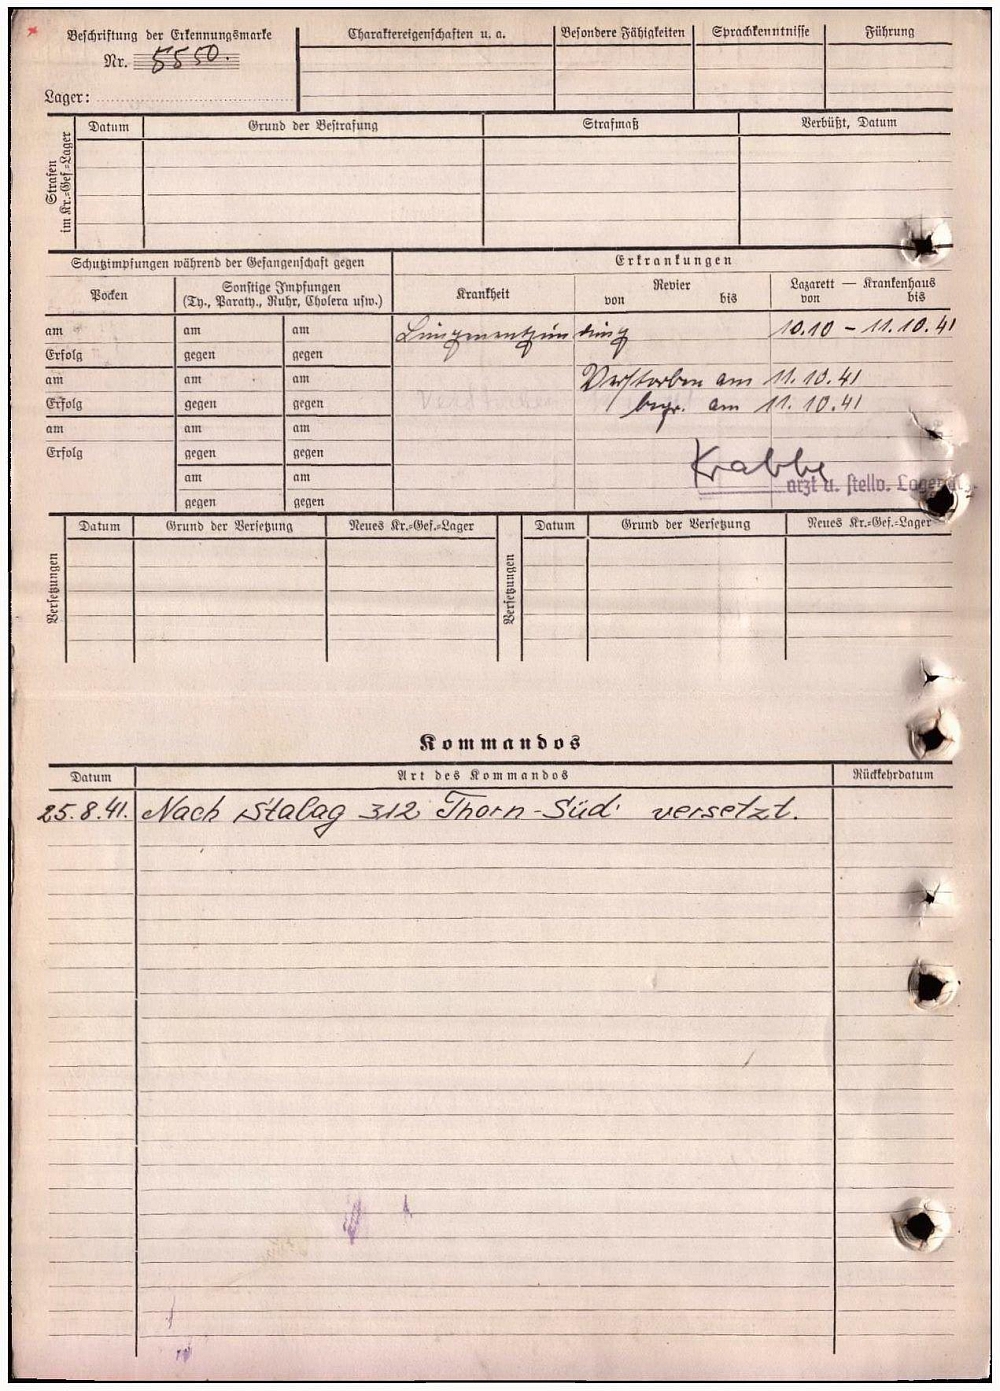 Beschriftung der Erkennungsmarke
Nr. 5550.
Lager:
Charaktereigenschaften u. a.
Besondere Fähigkeiten
Sprachkenntnisse
Führung
Strafen
im Kr.=Gef.=Lager
Datum
Grund der Bestrafung
Strafmaß
Verbüßt, Datum
Schutzimpfungen während der Gefangenschaft gegen
Erkrankungen
Pocken
Sonstige Impfungen
(Ty., Paraty., Ruhr, Cholera usw.)
Krankheit
Revier
von bis
Lazarett — Krankenhaus
von bis
am am am Lungenentzündung 10.10 - 11.10.41
Erfolg gegen gegen
am am am Verstorben am 11.10.41
Erfolg gegen gegen begr. am 11.10.41
am am am
Erfolg gegen gegen
am am
gegen gegen
Krabbe
arzt u. stellv.
Versetzungen
Datum
Grund der Versetzung
Neues Kr.=Gef.=Lager
Versetzungen
Datum
Grund der Versetzung
Neues Kr.=Gef.=Lager
Kommandos
Datum
Art des Kommandos
Rückkehrdatum
25.8.41. Nach Stalag 312 Thorn-Süd versetzt.